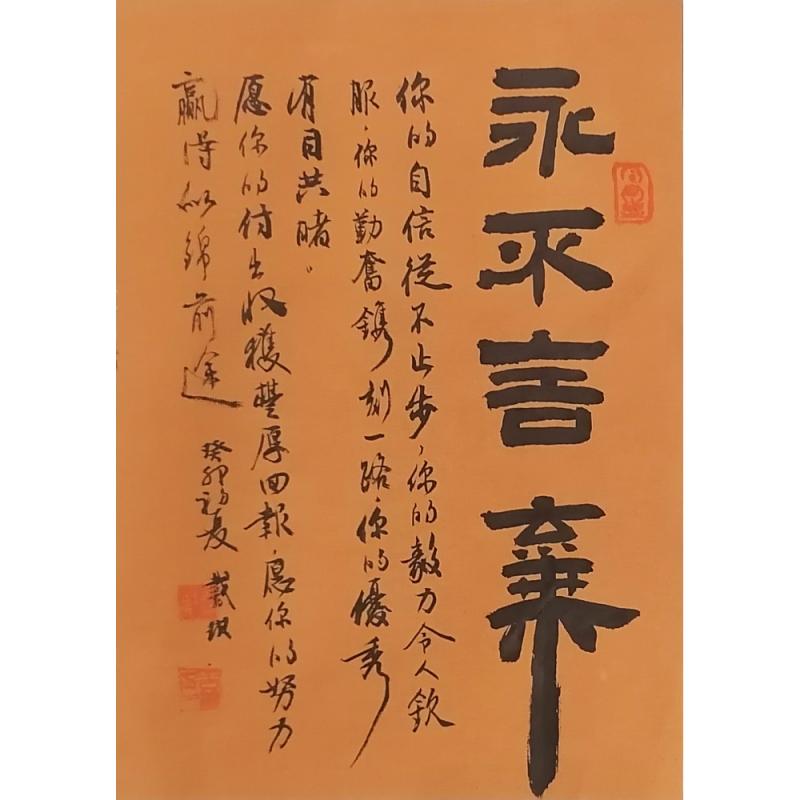 永不言棄
你的自信從不止步，你的毅力令人欽
服，你的勤奮鐫刻一路，你的優秀
有目共睹。
愿你的付出收獲豐厚回報，愿你的努力
贏得似錦前途
癸卯初夏 戴琪